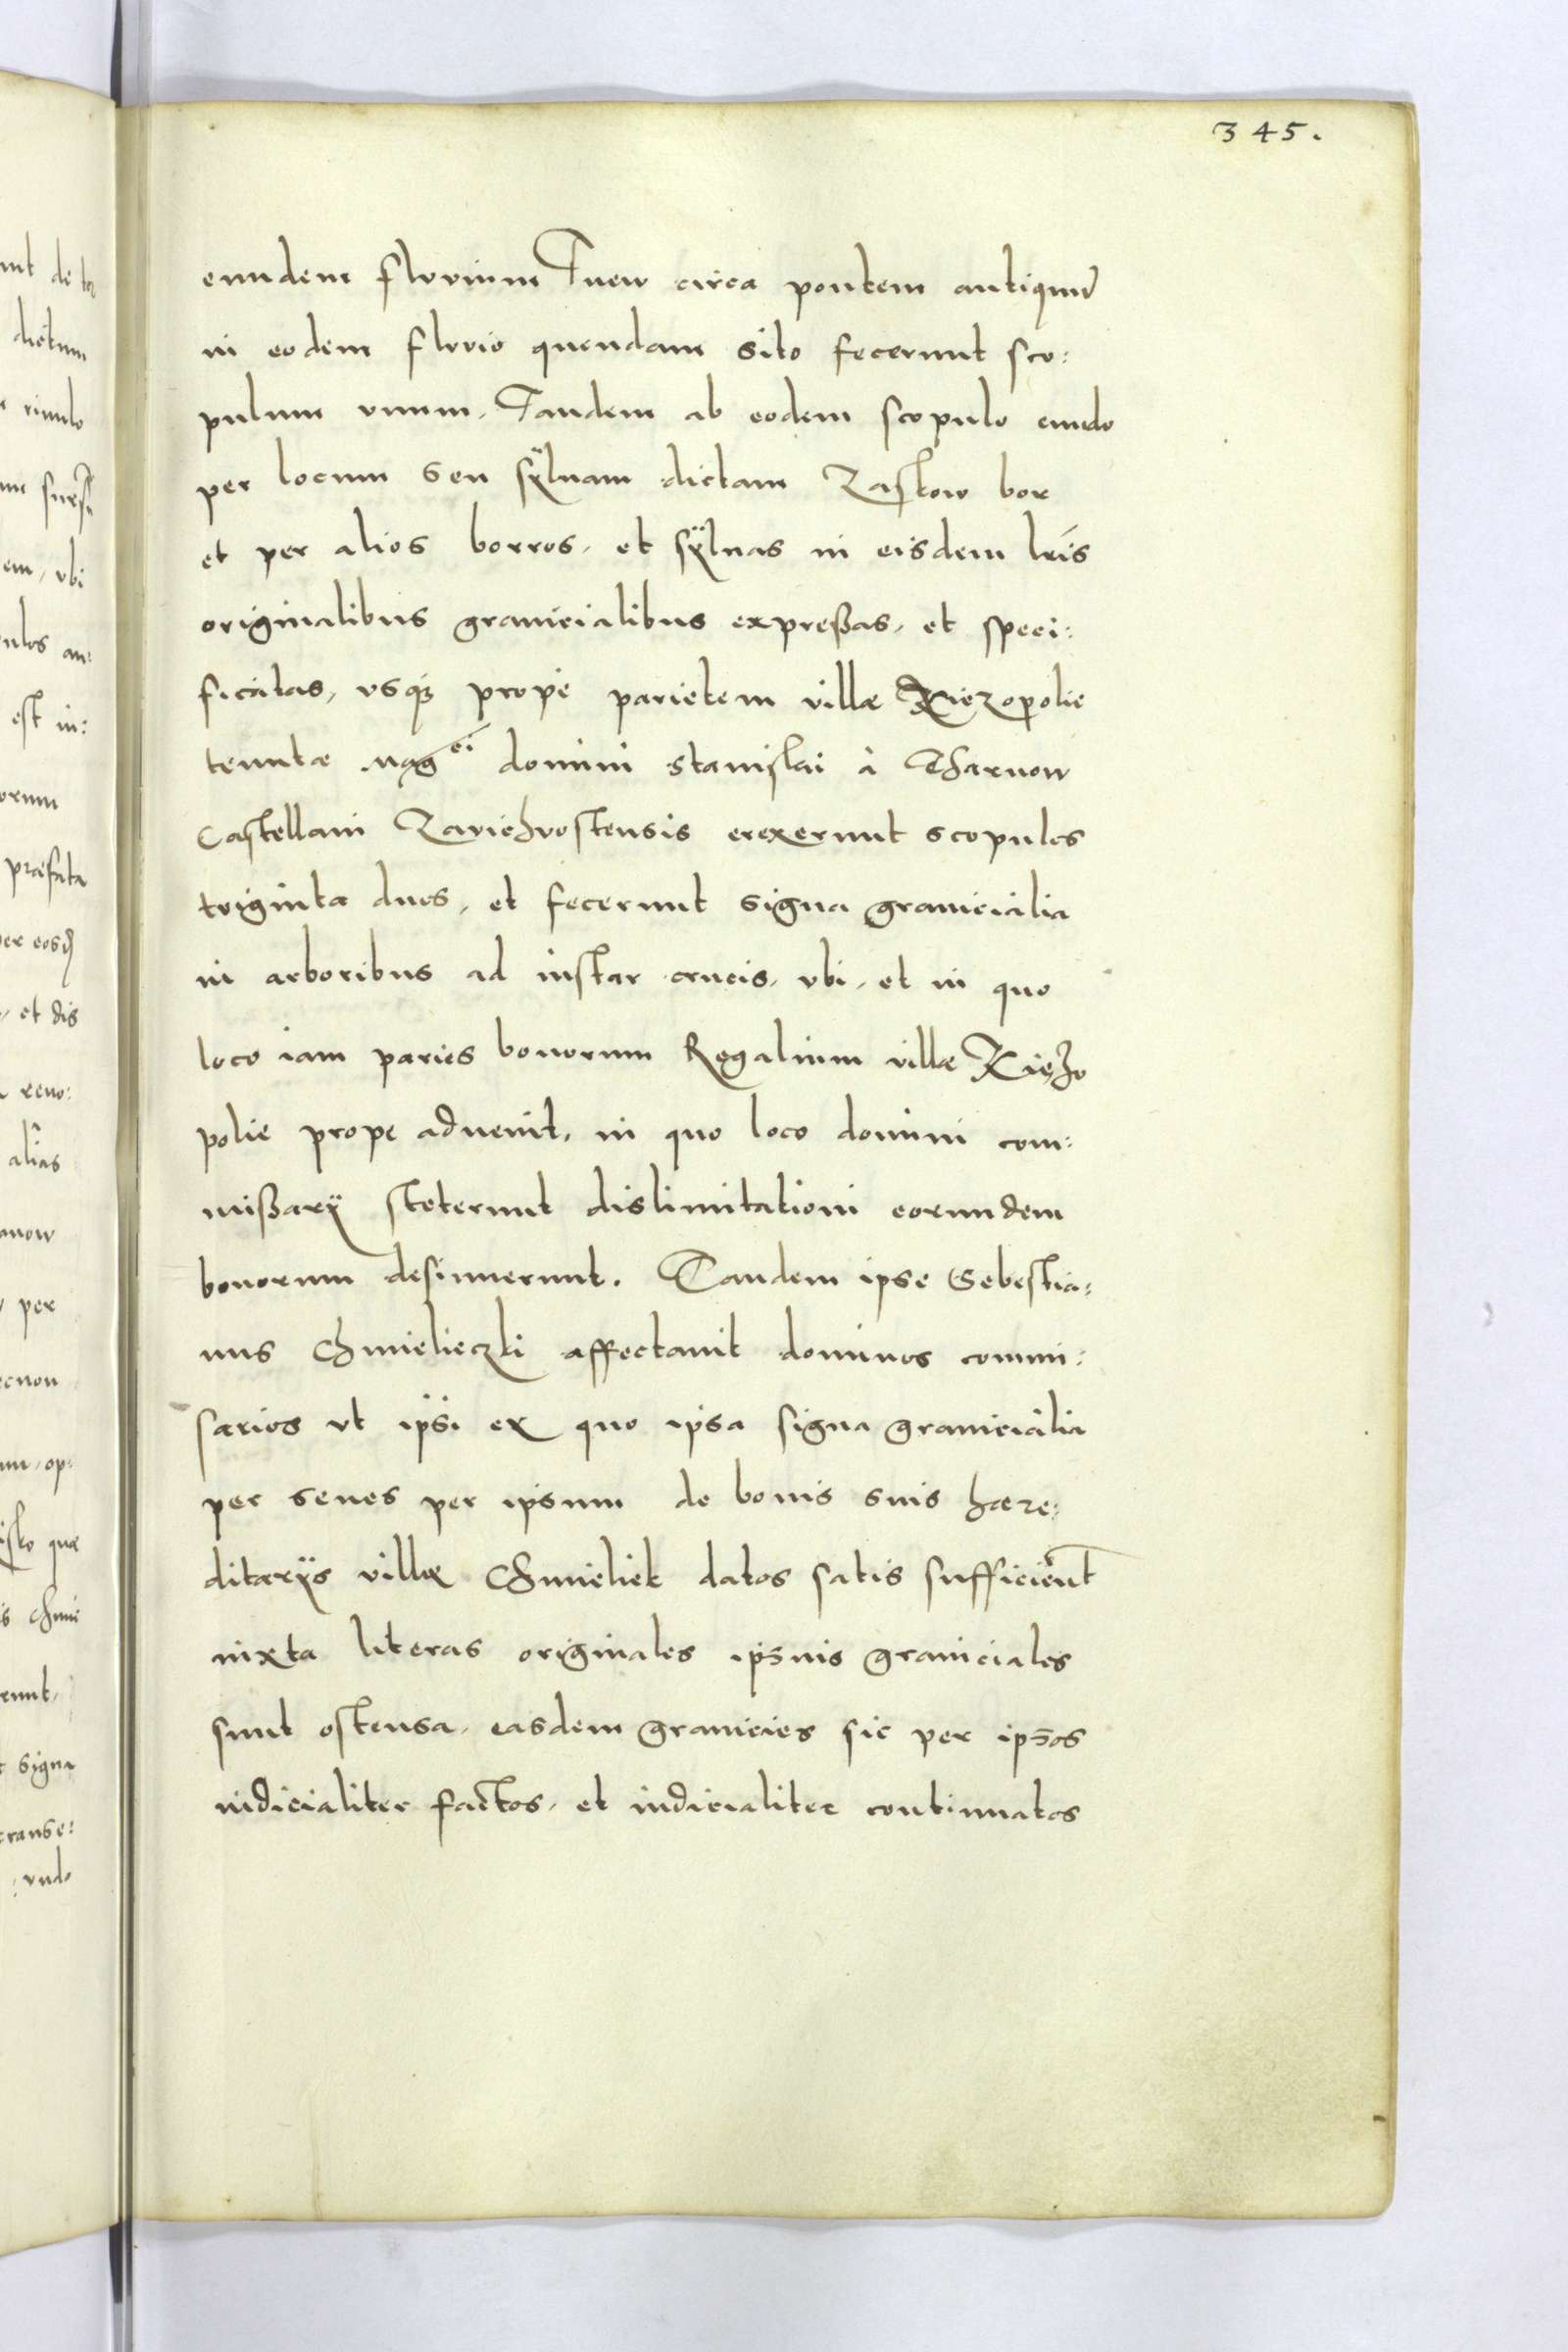 345.
eundem fluvium Tnew circa pontem antiquũ
in eodem fluvio quendam sito fecerunt sco:
pulum vnum, Tandem ab eodem scopulo eundo
per locum seu sÿluam dictam Zastow bor
et per alios borros, et sÿluas in eisdem lr̃is
originalibus granicialibus expreßas, et speci:
ficatas, vsq3 prope parietem villæ Xiezopolie
tenutæ Mag^ci domini Stanislai à Tharnow
Castellani Zavichvostensis erexerunt scopulos
triginta duos, et fecerunt signa granicialia
in arboribus ad instar crucis, vbi, et in quo
loco iam paries bonorum Regalium villæ Xięzo
polie prope aduenit, in quo loco domini com:
mißarÿ steterunt dislimitationi eorundem
bonorum desinuerunt. Tandem ipse Sebestia:
nus Chmielieczki affectauit dominos commi:
sarios vt ipsi ex quo ipsa signa granicialia
per senes per ipsum de bonis suis hære:
ditarÿs villæ Chmieliek datos satis sufficient̃
iuxta literas originales ipsius graniciales
sunt ostensa, easdem granicies sic per ipsos
iudicialiter factos, et iudicialiter continuatos